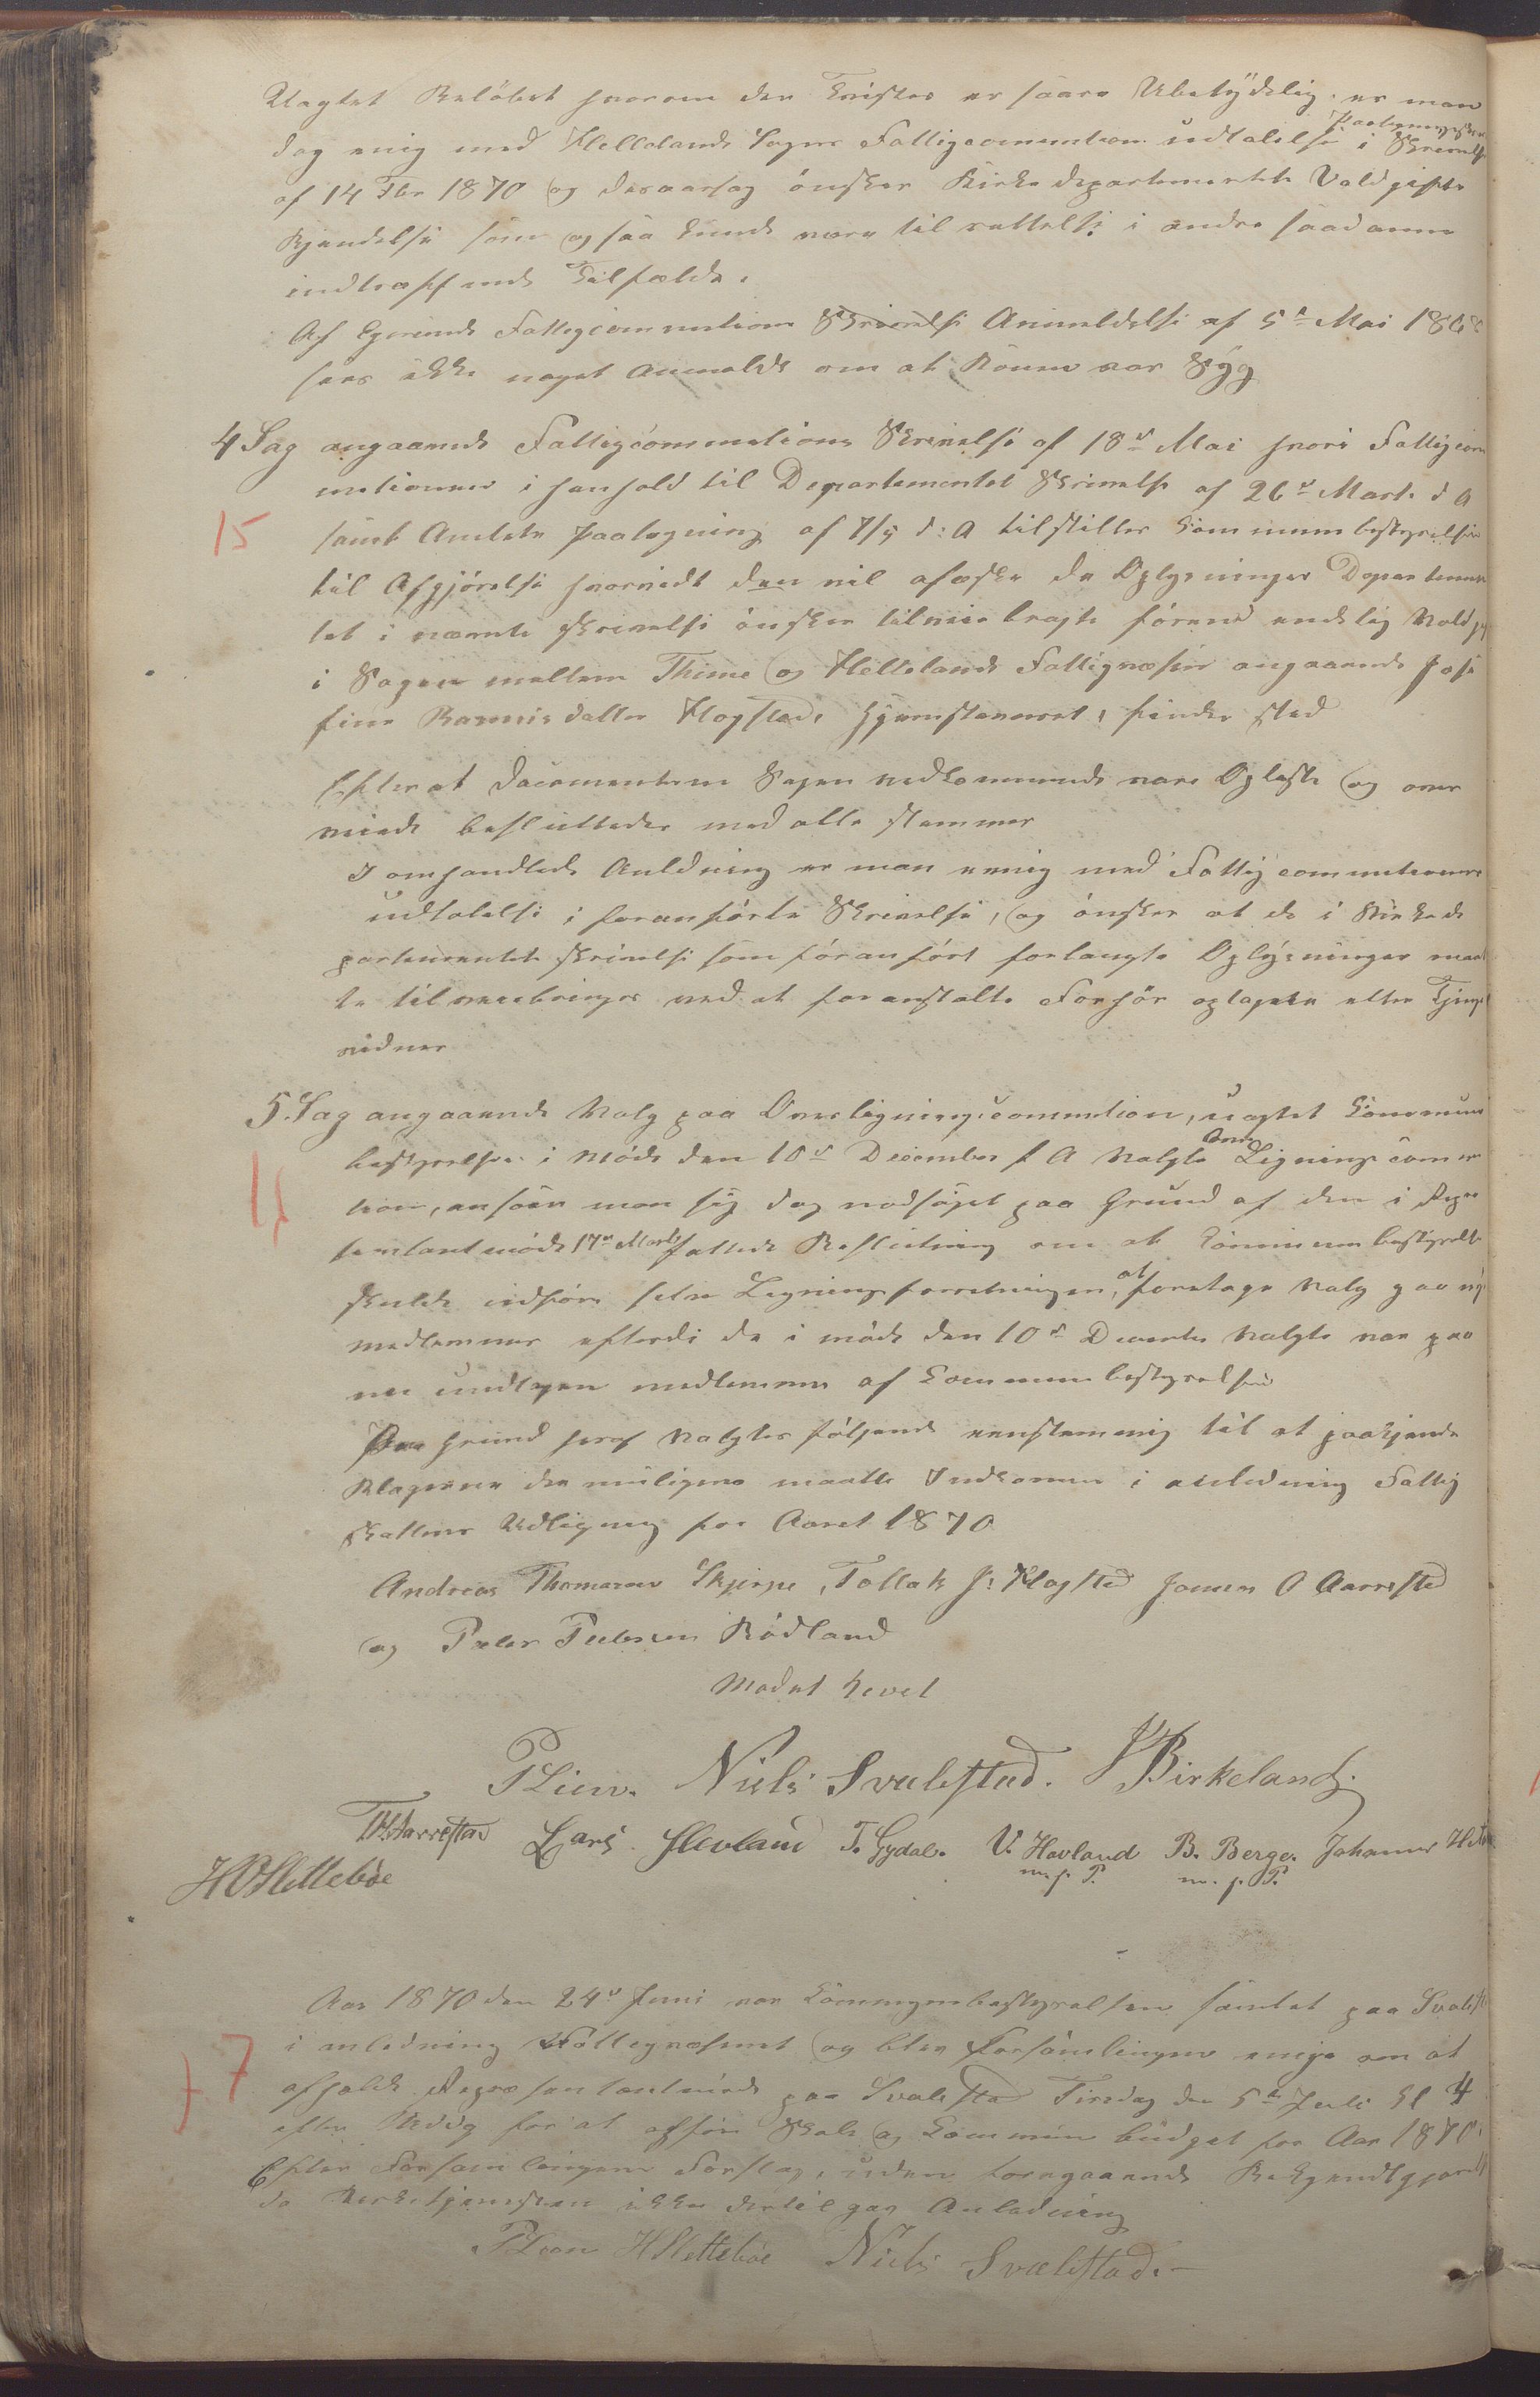 Uagtet Beløbet hvorom der Tvistes er saare Ubetydelig, er man
dog enig med Hellelands Sogns Fattigcommisions udtalelse i Paategningsskrivelse
af 14 Fbr 1870 og desaarsag ønsker Kirkedepartementets Voldgifts
Kjendelse som ogsaa kunde være til rettelse i andre saadanne
indtræffende Tilfælde.
Af Egersunds Fattigcommisions Skrivelse Anmeldelse af 5te Mai 1868
sees ikke noget Anmeldt om at Konen var Syg
4 Sag angaaende Fattigcommisions Skrivelse af 18de Mai hvori Fattigcom
misionen i henhold til Departementet Skrivelse af 26de Marts d A
15
samt Amtets Paategning af 7/5 d: A tilstiller Communebestyrelsen
til Afgjørelse hvorvidt den vil afæske de Oplysninger Departemen
tet i nævnte Skrivelse ønsker tilveiebragte førend endelig Voldgift
i Sagen mellem Thime og Hellelands Fattigvæsen angaaende Jose
fine Rasmusdatter Hogstads Hjemstavnsret, finder sted
Efterat Documenterne Sagen vedkommende vare Oplæste og over
veiede besluttedes med alle stemmer
I omhandlede Anledning er man enig med Fattigcommisionens
udtalelse i foranførte Skrivelse, og ønsker at de i Kirkede
partementets skrivelse som foranført forlangte Oplysninger maat
te tilveiebringes ved at foranstalte Forhør optaget eller Things
vidner
5. Sag angaaende Valg paa Overligningscommision, uagtet Commune
bestyrelsen i Møde den 10de December f A Valgte Over Ligningscommi
16
sion, anseer man sig dog nødsaget paa Grund af den i Repræ
sentantmøde 17de Marts fattede Beslutning om at Communebestyrelse
skulde udføre selve Ligningsforretningen, at foretage Valg paa nye
medlemmer efterdi de i møde den 10de Decembr Valgte var paa
en undtagen medlemmer af Communebestyrelsen
Paa Grund heraf Valgtes følgende eenstemmig til at paakjende
Klagerne der muligens maatte Indkomme i anledning Fattig
skattens Udligning for Aaret 1870
Andreas Thomassen Skjerpe, Tollak J: Hogsted Jonas O Aarrestad
og Peder Pedersen Rødland
Mødet hevet
PLien. Niels Svalestad. JBirkeland.
THAarrestad Lars Hevland T. Gydal. V. Havland B. Berge. Johannes
m. f. P. m. f. P.
HOSlettebøe
Aar 1870 den 24de Juni var Communebestyrelsen samlet paa Svalest
i anledning Fattigvæsenet og blev Forsamlingen enige om at
17
afholde Repræsentantmøde paa Svalestad Tirsdag den 5te Juli Kl 4
efter Middag for at opføre Skole og Commune büdget for Aar 1870.
Efter Forsamlingens Forslag, uden foregaaende Bekjendtgjørelse
da Kirketjenesten ikke dertil gav Anledning
PLien HSlettebøe Niels Svalestad.